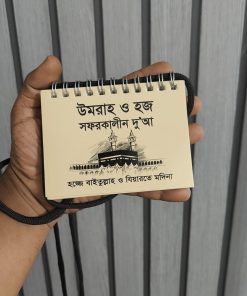 উমরাহ ও হজ
সফরকালীন দু'আ
হজ্জে বাইতুল্লাহ ও যিয়ারতে মদিনা